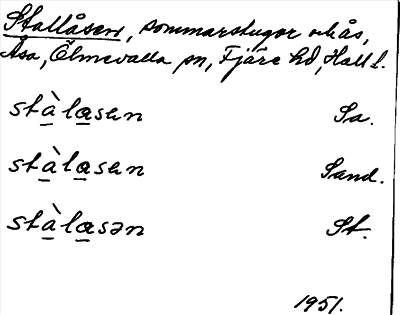 Stallåsen, sommarstugor och ås,
Åsa, Ölmevalla sn, Fjäre hd, Hall l.
stàlåsen Sa.
stàlåsen Sand.
stàlåsən St.
1951.